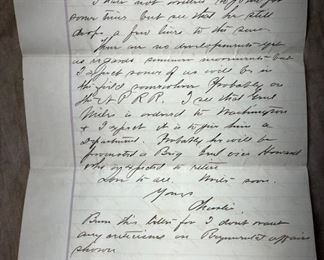 I have not written to you for
some time but
drop a few lines to the
There are no developments yet
as regards summer movements but
I expect some of us will be in
the field somewhere Probably on
the N P R R. I see that Genl
Miles is ordered to Washington
& I expect it is to give him a
Department. Probably he will be
promoted a Brig Genl vice Howard
who is expected to retire
Love to all. Write soon.
Yours
Charlie
Burn this letter for I dont want
any criticisms on Regimental affairs
shown